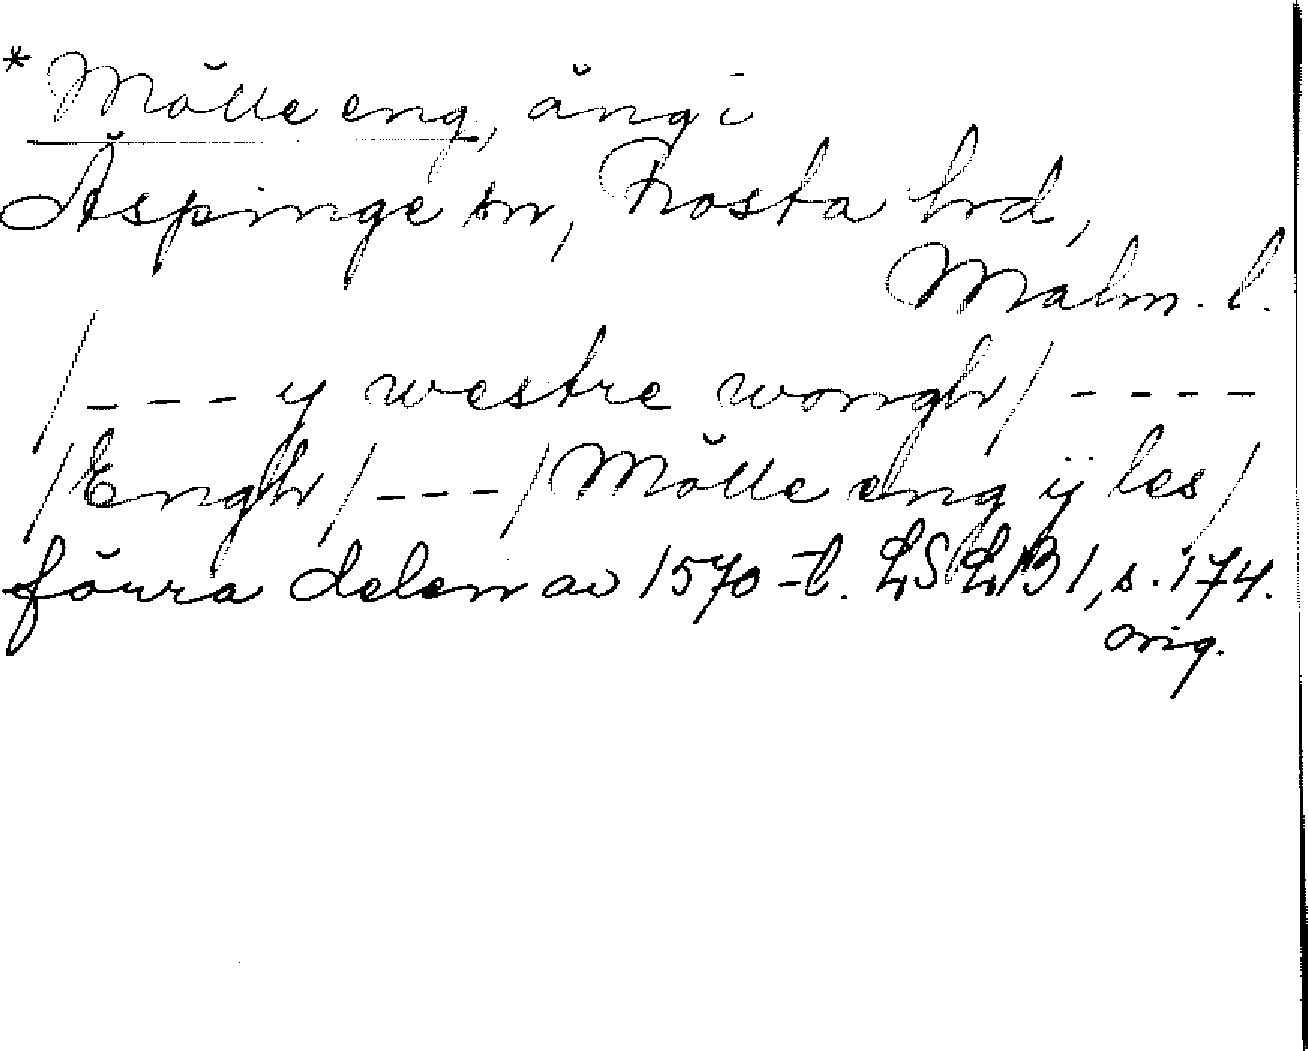 * Mölle eng, äng i
Äspinge sn, Frosta hrd,
Malm. l.
/--- y westre wongh/ ----
/Engh/---/Mölle eng ÿ les/
förra delen av 1570-t. LSLB 1, s. 174.
orig.